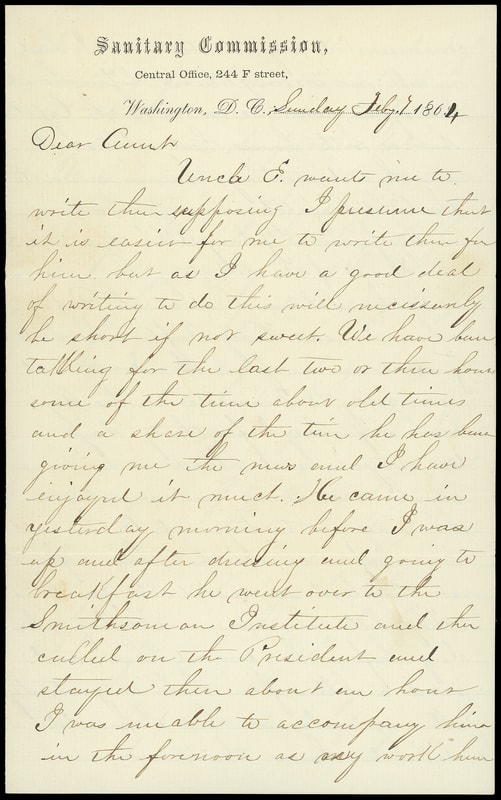 Sanitary Commission,
Central Office, 244 F street,
Washington, D. C., Sunday Feby. 7 1864
Dear Aunt
Uncle E. wants me to
write then supposing I presume that
it is easier for me to write then for
him but as I have a good deal
of writing to do this will necessarily
be short if not sweet. We have been
talking for the last two or three hours
some of the time about old times
and a share of the time he has been
giving me the news and I have
enjoyed it much. He came in
yesterday morning before I was
up and after dressing and going to
breakfast he went over to the
Smithsonian Institute and then
called on the President and
stayed there about an hour
I was unable to accompany him
in the forenoon as my work here